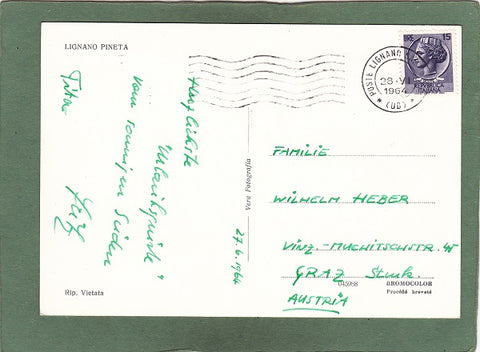 LIGNANO PINETA
Herzlichste
"Urlaubsgrüße"
vom sonnigen Süden
27.6.1964
Vera Fotografia
POSTE LIGNANO
28-VI
1964
(UD)
15
FAMILIE
WILHELM HEBER
VINZ.-MUCHITSCHSTR. 45
GRAZ Stmk.
AUSTRIA
045968 BROMOCOLOR
Procédé breveté
Rip. Vietata